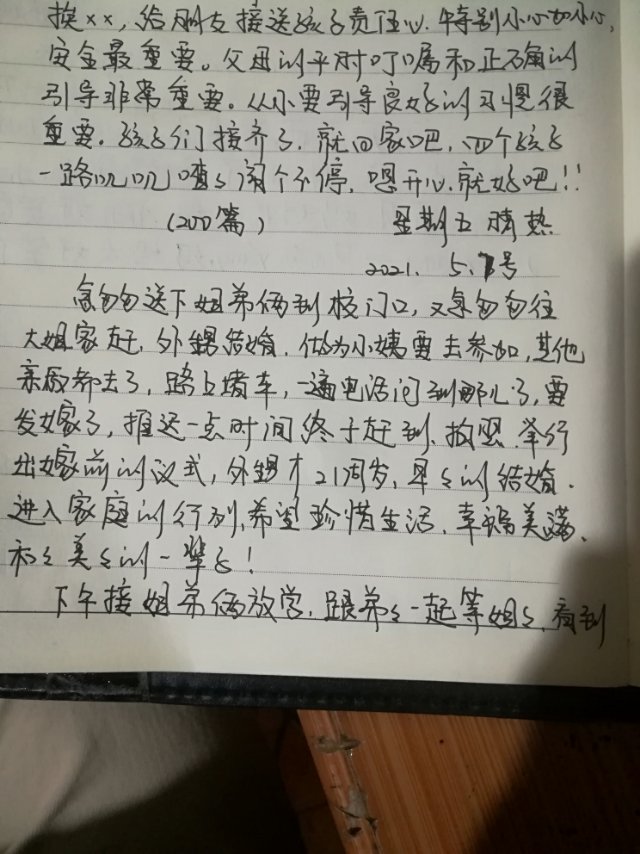 挨××，给朋友接送孩子责任心.特别小心加小心，
安全最重要。父母的平时叮嘱和正确的
引导非常重要。从小要引导良好的习惯很
重要.孩子们接齐了.就回家吧，四个孩子
一路叽叽喳々闹个不停，嗯开心.就好吧!!
(200篇) 星期五 晴热
2021. 5.7号
急匆匆送下姐弟俩到校门口，又急匆匆往
大姐家赶.外甥结婚.做为小姨要去参加，其他
亲戚都去了，路上堵车，一遍电话问到哪儿了，要
发嫁了，推迟一点时间终于赶到.拍照.举行
出嫁前的仪式，外甥才21周岁，早々的结婚.
进入家庭的行列.希望珍惜生活.幸福美满、
和々美々的一辈子!
下午接姐弟俩放学，跟弟々一起等姐々，看到